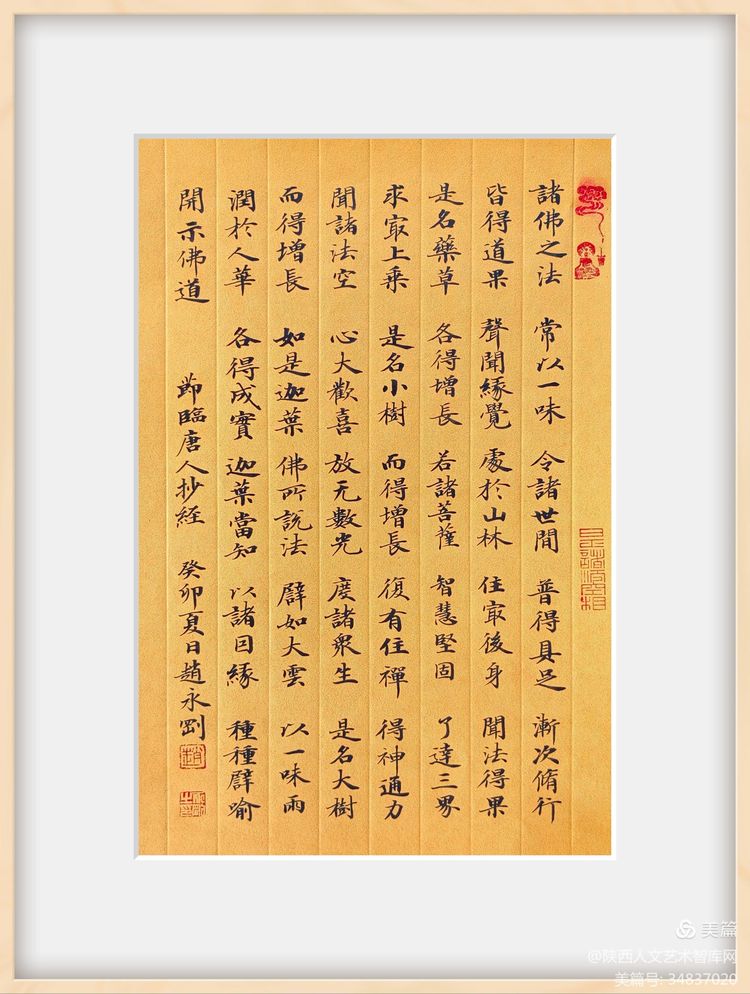 諸佛之法 常以一味 令諸世間 普得具足 漸次脩行
皆得道果 聲聞緣覺 處於山林 住寂後身 聞法得果
是名藥草 各得增長 若諸菩薩 智慧堅固 了達三界
求寂上乘 是名小樹 而得增長 復有住禪 得神通力
聞諸法空 心大歡喜 放无數光 度諸眾生 是名大樹
而得增長 如是迦葉 佛所說法 譬如大雲 以一味雨
潤於人華 各得成實 迦葉當知 以諸因緣 種種譬喻
開示佛道 節臨唐人抄經 癸卯夏日趙永剛
是諸法空相
美篇
@陕西人文艺术智库网
美篇号: 34837020